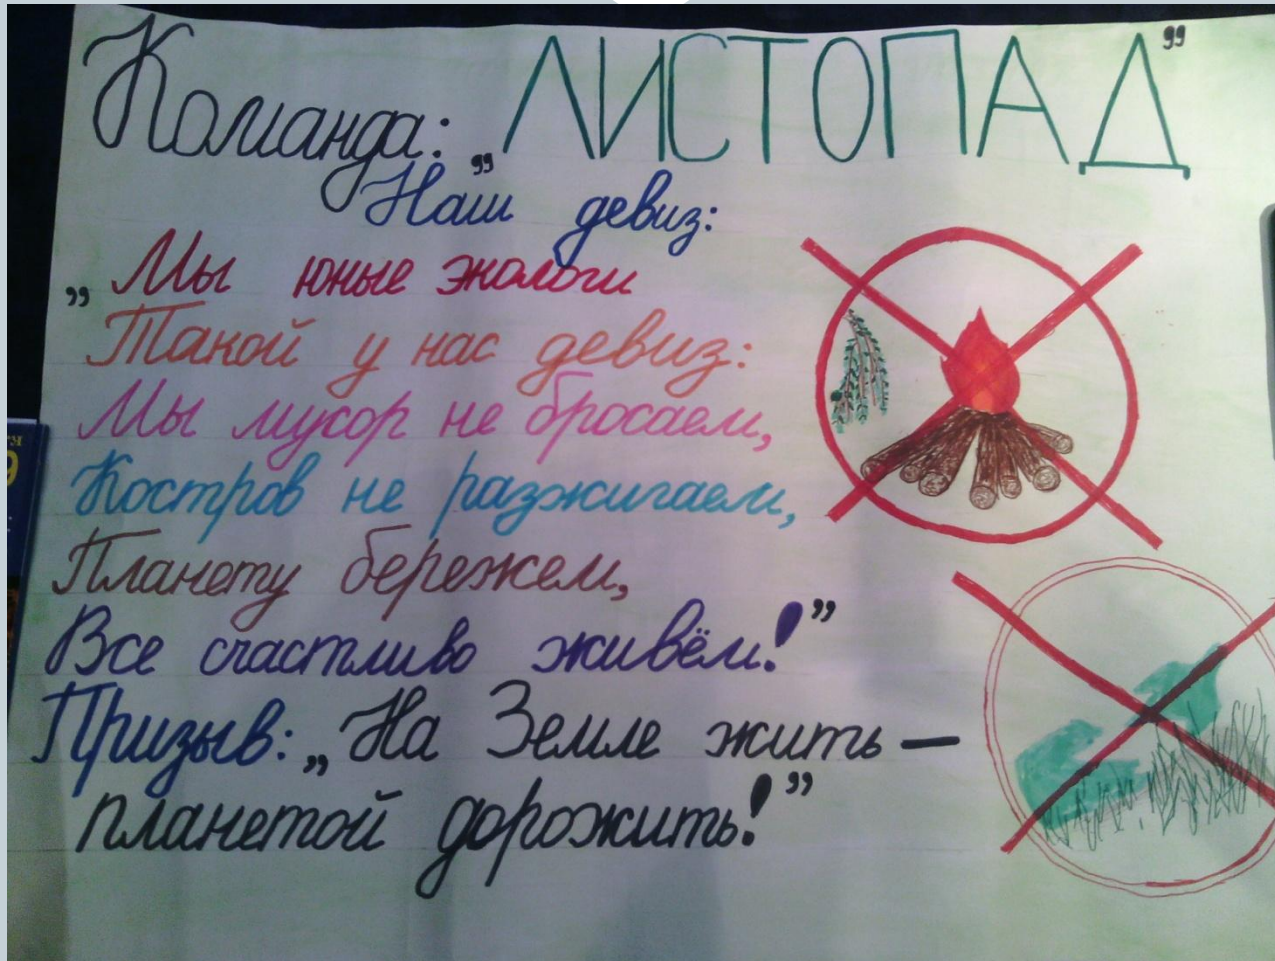 Команда: „ЛИСТОПАД”
Наш девиз:
„Мы юные экологи
Такой у нас девиз:
Мы мусор не бросаем,
Костров не разжигаем,
Планету бережем,
Все счастливо живём!”
Призыв: „На Земле жить –
планетой дорожить!”